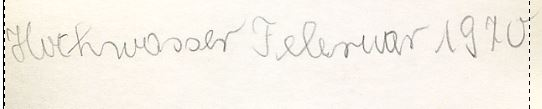 Hochwasser Februar 1970